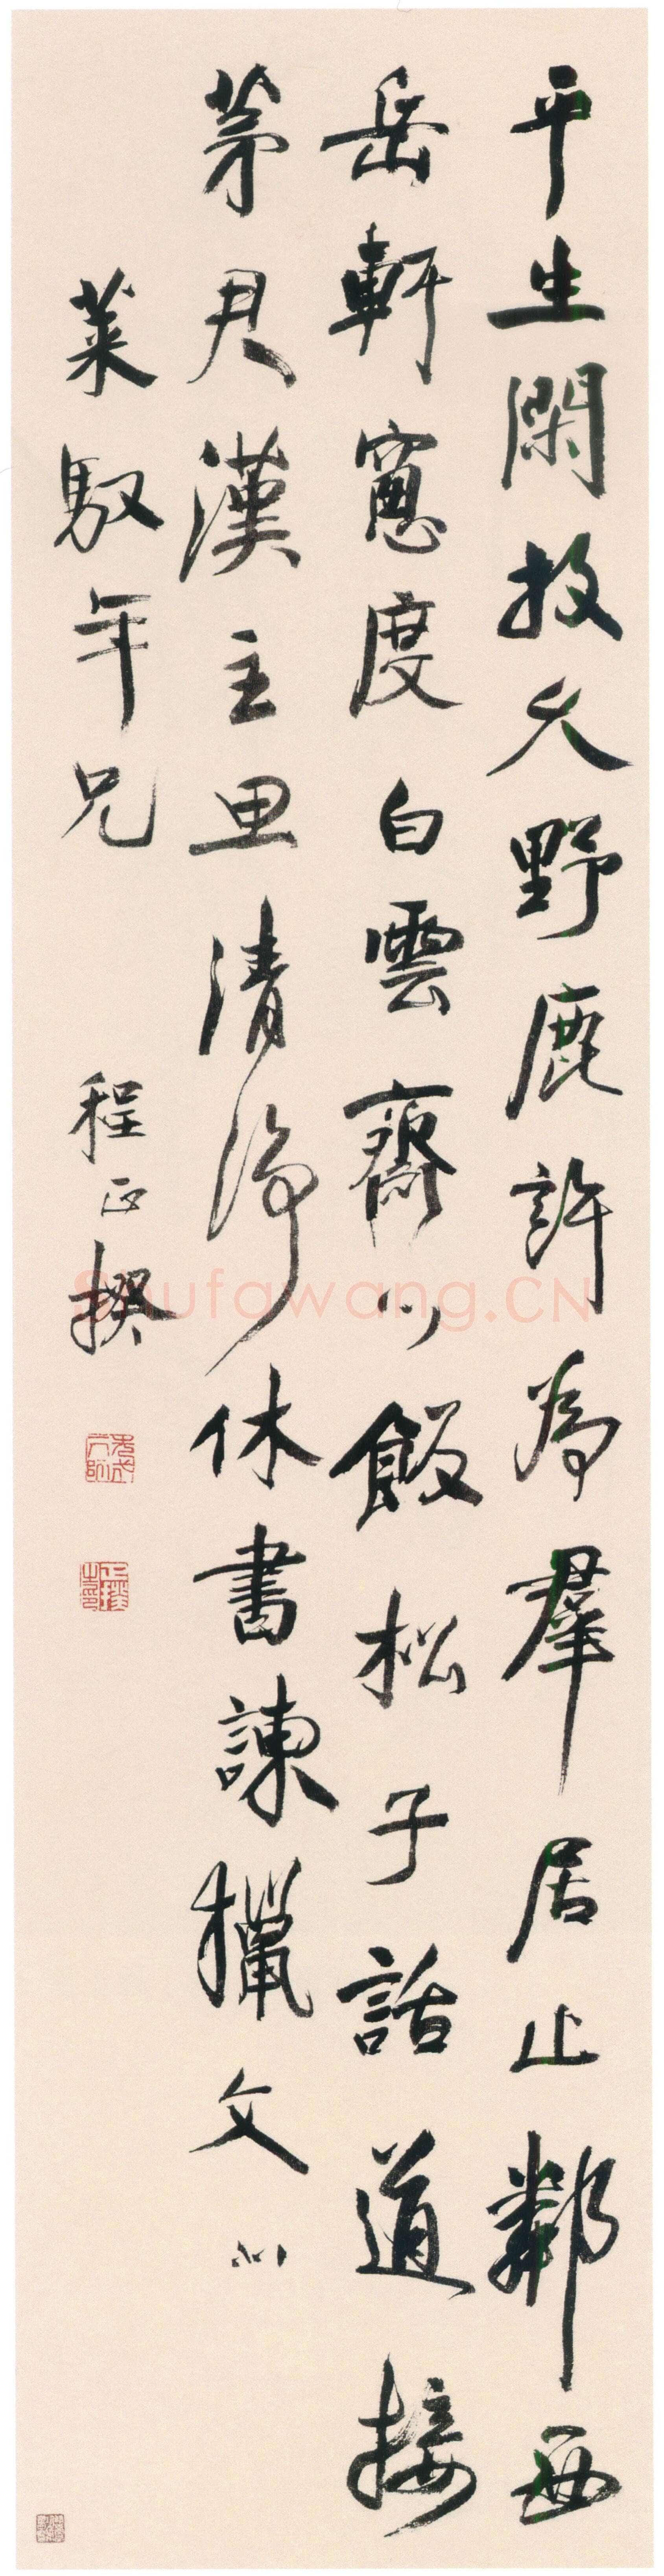 平生閑放久野鹿許為羣居止鄰西
岳軒窻度白雲齋心飯松子話道接
茅君漢主思清淨休書諫獵文心
萊馭年兄
程正揆
Shufawang.CN